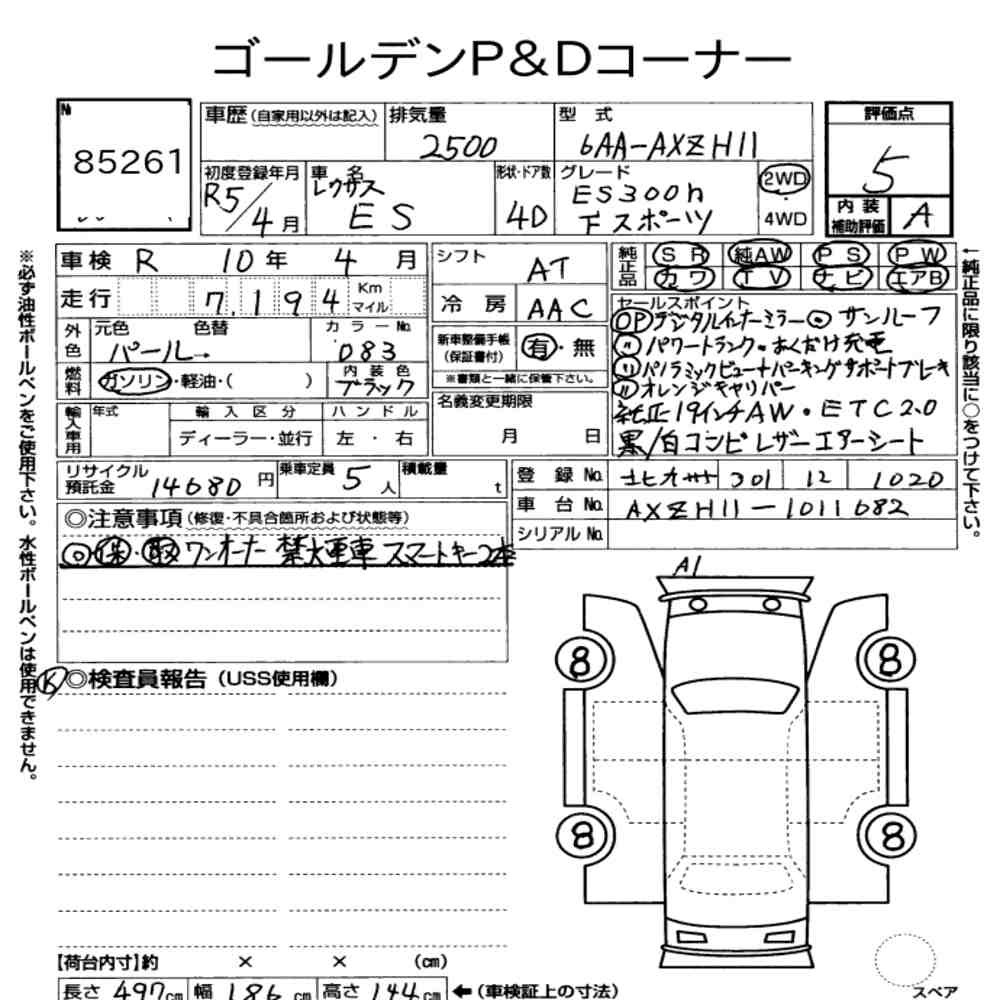 ゴールデンP&Dコーナー
№
85261
車歴(自家用以外は記入)
排気量
2500
型 式
6AA-AXZH11
評価点
5
初度登録年月
R5/4月
車 名
レクサス
ES
形状・ドア数
4D
グレード
ES300h
Fスポーツ
2WD
4WD
内 装
補助評価
A
車検 R 10年 4月
シフト AT
純正品
SR 純AW PS PW
カワ TV ナビ エアB
走行 7,194 Km
マイル
冷 房 AAC
セールスポイント
OP デジタルインナーミラー◎サンルーフ
〃 パワートランク・おくだけ充電
〃 パノラミックビュー+パーキングサポートブレーキ
〃 オレンジキャリパー
純正19インチAW・ETC2.0
黒/白コンビレザーエアーシート
外色
元色 色替
パール→
カラーNo.
083
新車整備手帳
(保証書付)
有・無
※書類と一緒に保管下さい。
燃料
ガソリン・軽油・( )
内装色
ブラック
名義変更期限
月 日
輸入車用
年式
輸入区分
ディーラー・並行
ハンドル
左・右
リサイクル
預託金
14680円
乗車定員 5人
積載量 t
登 録 No. 北九州 301 12 1020
車 台 No. AXZH11-1011682
シリアル No.
◎注意事項(修復・不具合箇所および状態等)
◎保・取 ワンオーナー 禁煙車 スマートキー2本
A1
8
8
8
8
◎検査員報告(USS使用欄)
【荷台内寸】約 × × (cm)
長さ 497cm 幅 186cm 高さ 144cm ←(車検証上の寸法)
スペア
※必ず油性ボールペンをご使用下さい。水性ボールペンは使用できません。
←純正品に限り該当に○をつけて下さい。